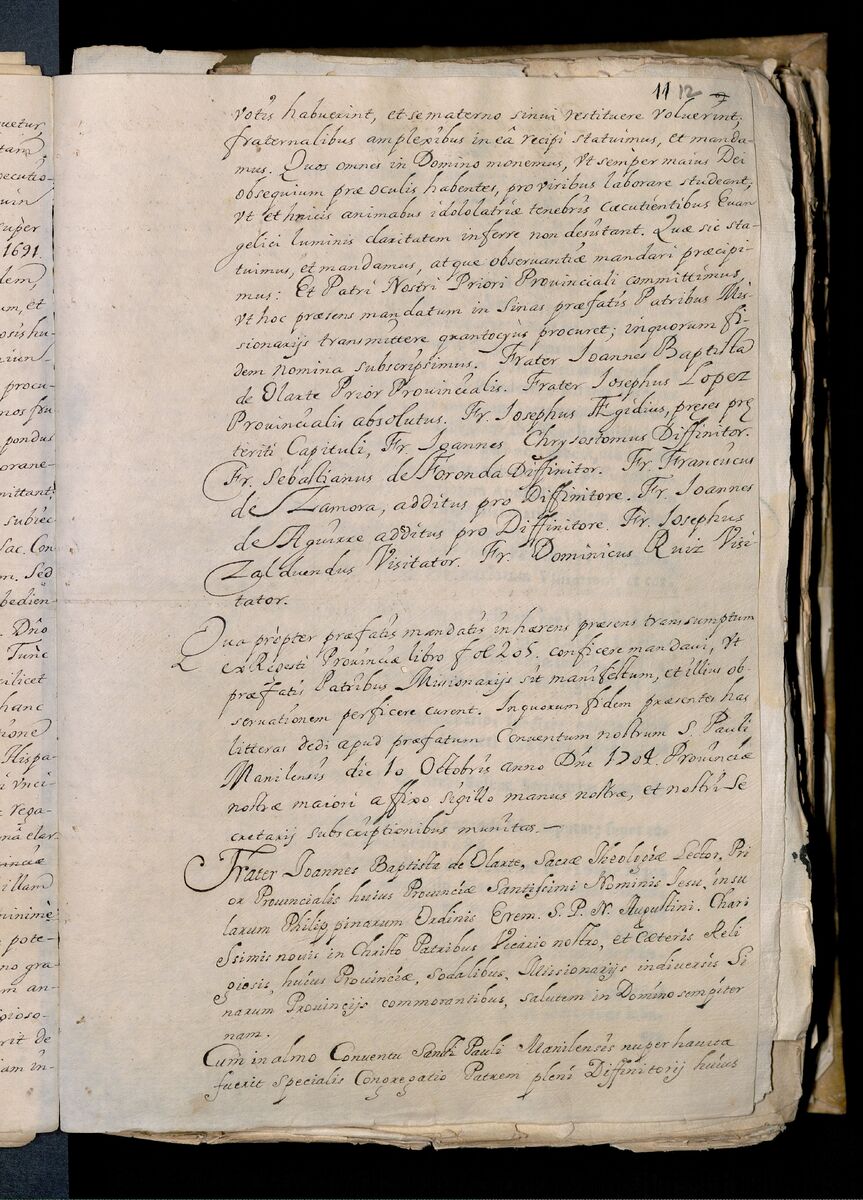 11 12
votis habuerint, et se materno sinui restituere voluerint,
fraternalibus amplexibus in eâ recipi statuimus, et manda-
mus. Quos omnes in Domino monemus, vt semper maius Dei
obsequium præ oculis habentes, pro viribus laborare studeant,
vt ethnicis animabus idololatriæ tenebris cæcutientibus Euan
gelici luminis claritatem inferre non desistant. Quæ sic sta-
tuimus, et mandamus, atque observantiæ mandari præcipi-
mus: Et Patri Nostri Priori Provinciali committimus
vt hoc præsens mandatum in Sinas præfatis Patribus Mis-
sionarijs transmittere quantocyùs procuret; in quorum fi-
dem nomina subscripsimus. Frater Ioannes Baptista
de Olarte Prior Provincialis. Frater Iosephus Lopez
Provincialis absolutus. Fr. Iosephus Ægidius, preses prę
teriti Capituli, Fr. Ioannes Chrysostomus Diffinitor.
Fr. Sebastianus de Foronda Diffinitor. Fr. Franciscus
de Zamora, additus pro Diffinitore. Fr. Ioannes
de Aguirre additus pro Diffinitore. Fr. Iosephus
Zalduendus Visitator. Fr. Dominicus Ruiz Visi-
tator.
Qua propter præfatis mandatis inhærens præsens transsumptum
ex Regesti Provinciæ libro fol 205. conficere mandavi, vt
præfatis Patribus Misionarijs sit manifestum, et illius ob-
servationem perficere curent. In quorum fidem præsentes has
litteras dedi apud præfatum Conventum nostrum S. Pauli
Manilensis die 10 Octobris anno Dñi 1704. Provinciæ
nostræ maiori affixo sigillo manus nostræ, et nostri Se
cretarij subscriptionibus munitas.—
Frater Ioannes Baptista de Olarte, Sacræ Theologiæ Lector, Pri
or Provincialis huius Provinciæ Santissimi Nominis Iesu, insu
larum Philippinarum Ordinis Erem. S. P. N. Augustini. Chari
ssimis novis in Christo Patribus Vicario nostro, et Cæteris Reli
giosis, huius Provinciæ, sodalibus, Misionarijs in diversis Si
narum Provincijs commorantibus, salutem in Domino sempiter
nam.
Cum in almo Conventu Sancti Pauli Manilensis nuper habita
fuerit specialis Congregatio Patrem pleni Diffinitorij huius